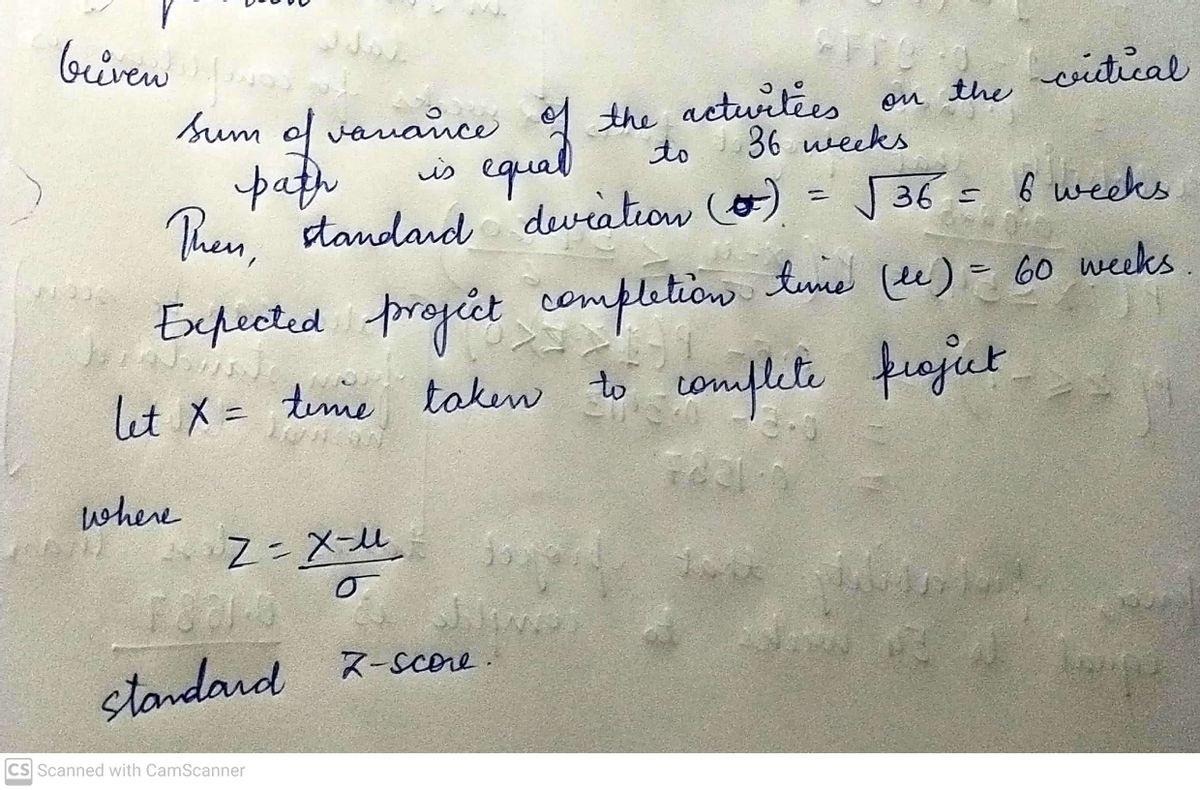 Given
sum of variance of the activities on the critical
path is equal to 36 weeks
Then, standard deviation (σ) = √36 = 6 weeks
Expected project completion time (μ) = 60 weeks.
let X = time taken to complete project
where
Z = X-μ
σ
standard Z-score.
CS Scanned with CamScanner